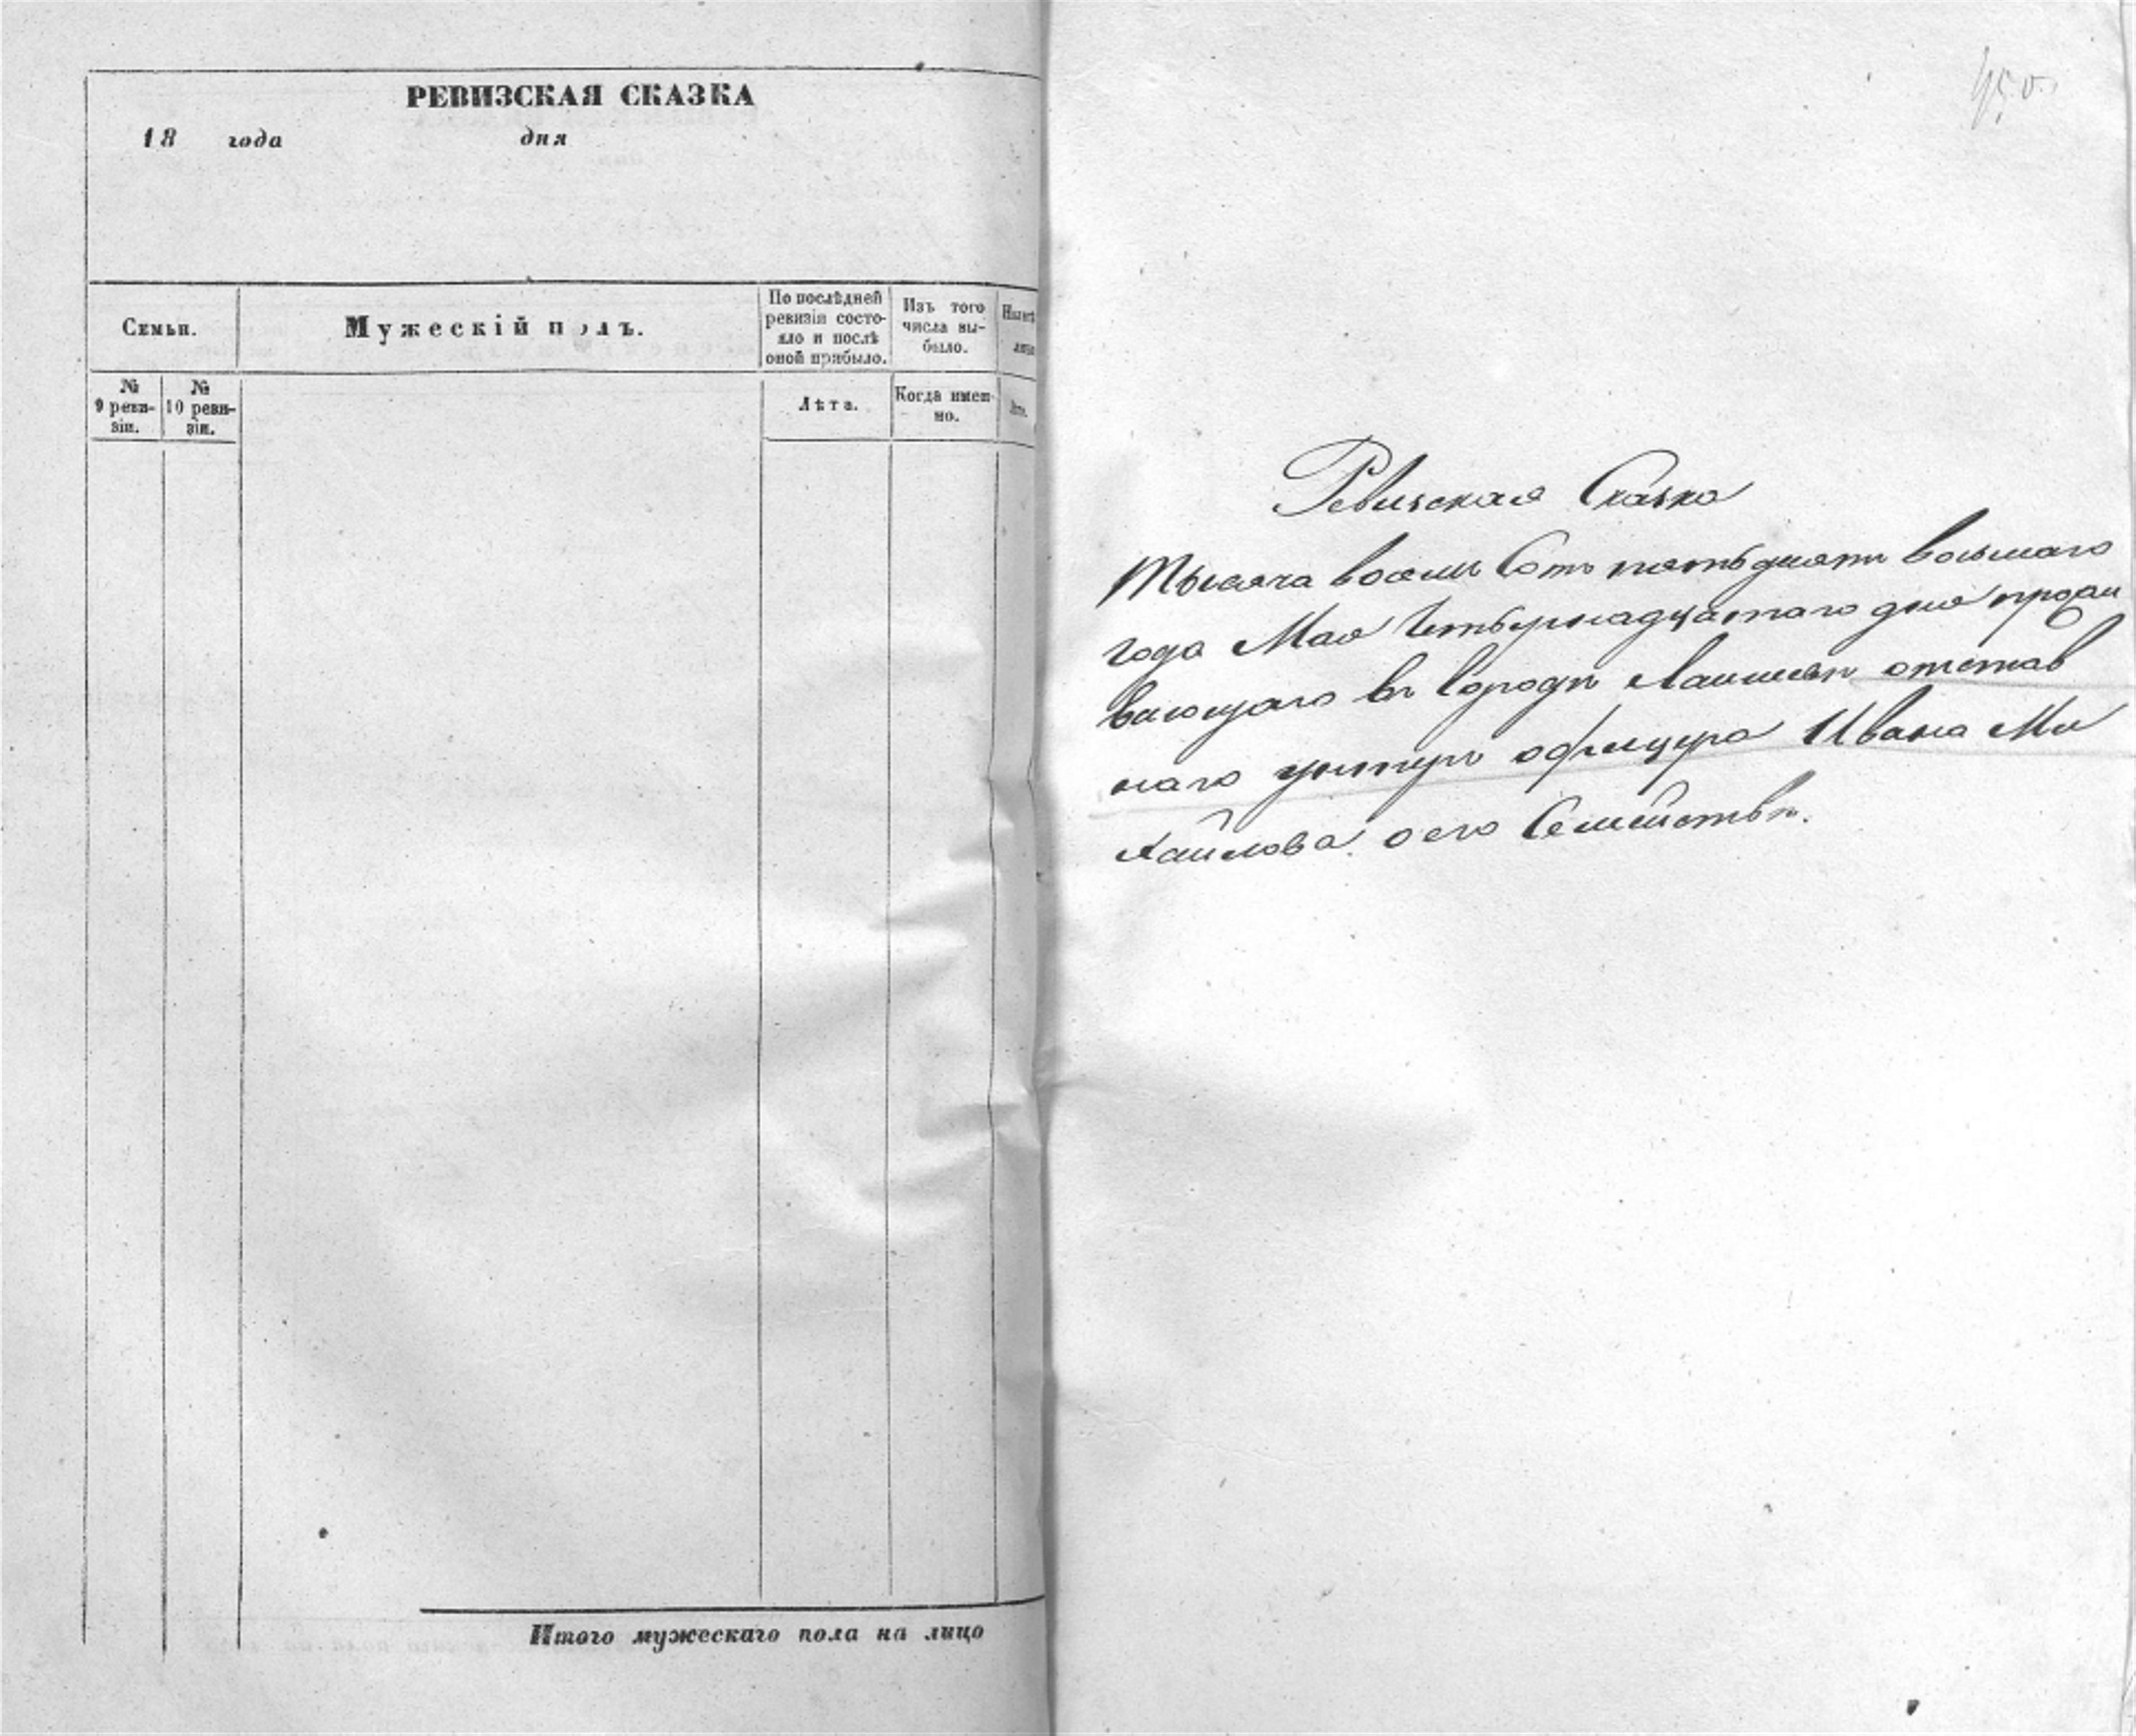 РЕВИЗСКАЯ СКАЗКА
18 года дня
Семьи.
Мужескій полъ.
По послѣдней
ревизіи состо-
яло и послѣ
оной прибыло.
Изъ того
числа вы-
было.
№
9 реви-
зіи.
№
10 реви-
зіи.
Лѣта.
Когда имен-
но.
Итого мужескаго пола на лицо
Ревизская Сказка
Тысяча восемь Сотъ пятьдесятъ восьмаго
года Мая Четырнадцатаго дня прожи
вающаго въ городѣ Лаишевѣ отстав
наго унтеръ офицера Ивана Ми
хайлова о его Семействѣ.